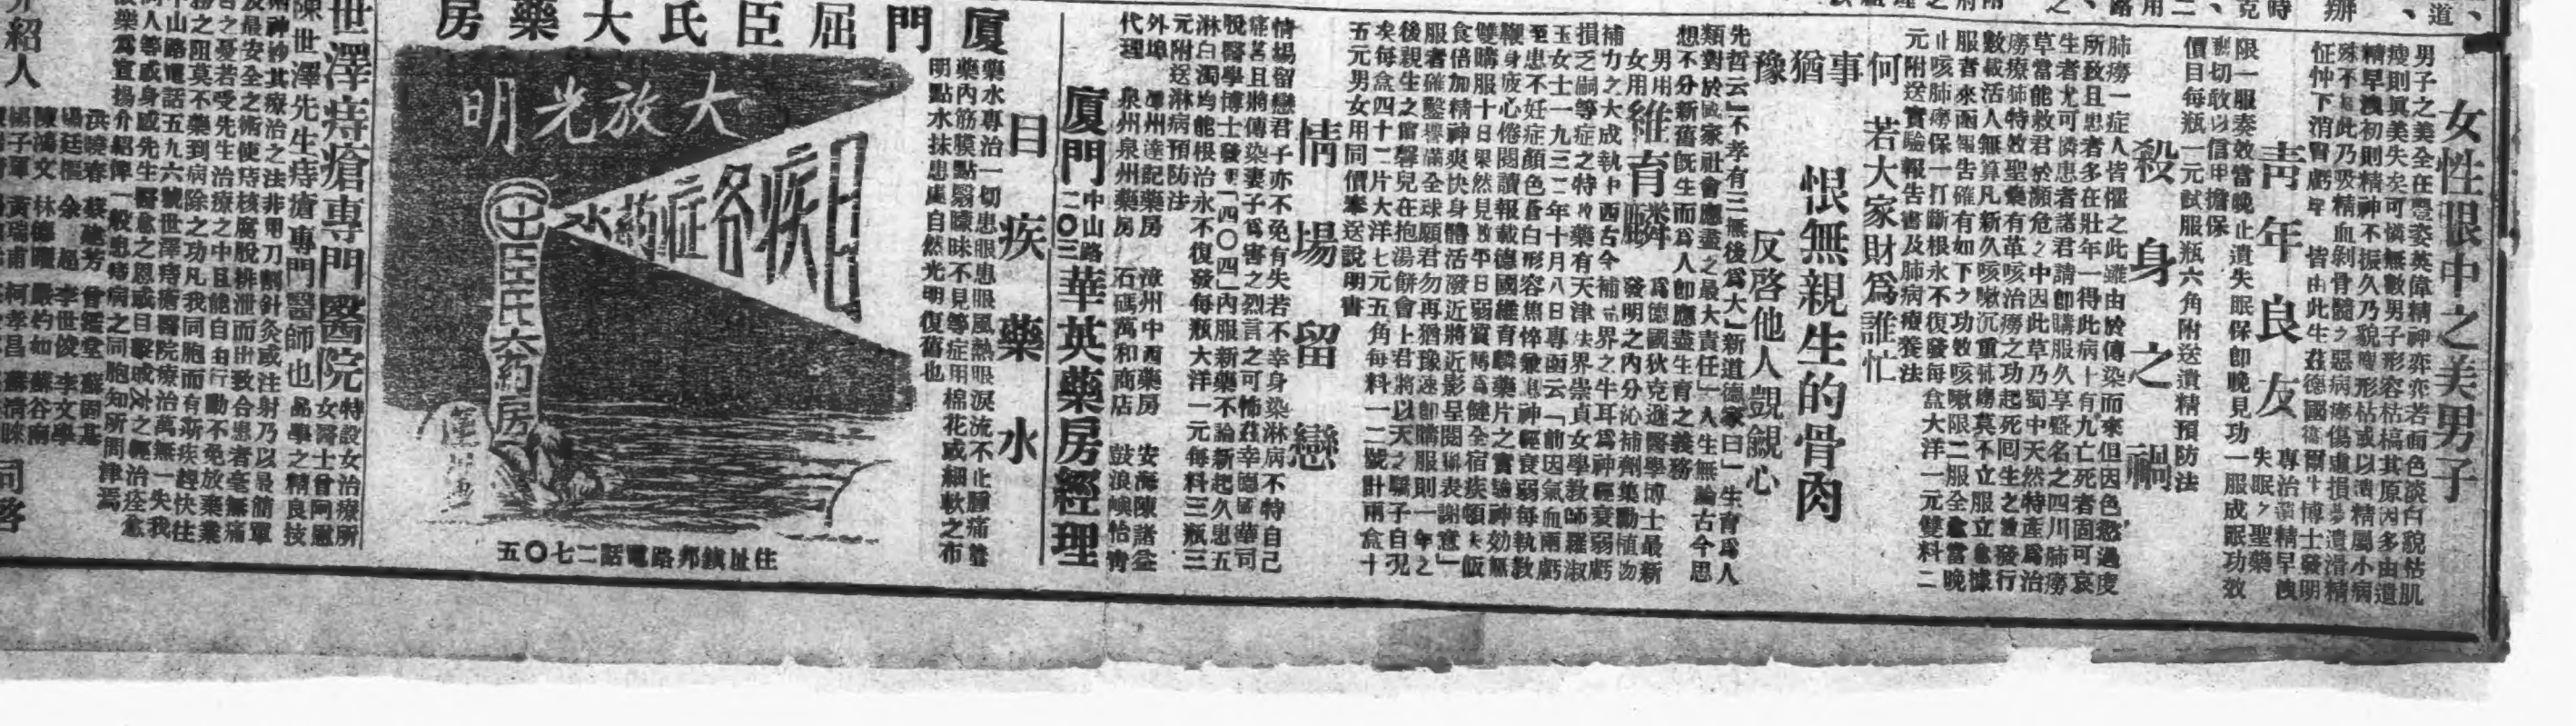 女性眼中之美男子
男子之美全在豐姿英偉精神弈弈若面色淡白貌枯肌
瘦則眞美失矣可憐無數男子形容枯槁其原因多由遺
精早洩初則精神不振久乃貌瘦形枯或以潰精屬小病
殊不
此乃吸精血剝骨髓之惡病癆傷虛損夢遺滑精
怔忡下消腎虧
皆由此生茲德國
博士發明
靑年良友
專治
精早洩
失眠之聖藥
限一服奏效當晚止遺失眠保卽晚見功一服成眠功效
切敢以信甲擔保
價目每瓶一元試服瓶六角附送遺精預防法
殺身之禍
肺癆一症人皆懼之此雖由於傳染而來但因色慾過度
所致且患者多在壯年一得此病十有九亡死者固可哀
生者尤可憐患者諸君請卽購服久享盛名之四川肺癆
草當能救君於瀕危之中因此草乃蜀中天然特產爲治
癆療肺特效聖藥有革咳治癆之功起死回生之
發行
數載活人無算凡新久咳嗽沉重肺癆莫不立服立
據
服者來函報告確有如下之功效咳嗽限二服全
當晚
止咳肺癆保一打斷根永不復發每盒大洋一元雙料二
元附送實驗報告書及肺病療養法
何事猶豫
若大家財爲誰忙
恨無親生的骨肉
反啓他人覬覦心
先哲云『不孝有三無後爲大』新道德家曰『生育爲人
類對於國家社會應盡之最大責任』人生無論古今思
想不分新舊旣生而爲人卽應盡生育之義務
男用
女用
維育麟
爲德國狄克遜醫學博士最新
發明之內分沁補劑集動植物
補力之大成執中西古今補
界之牛耳爲神經衰弱虧
損乏嗣等症之特效藥有天津
界崇貞女學敎師羅淑
玉女士一九三二年十月八日專函云「前因氣血兩虧
至患不妊症顏色蒼白形容焦悴
神經衰弱每執敎
鞭身疲心倦閱讀報載德國維育麟藥片之實驗神効無
雙購服十日果然見效
日弱質
健全宿疾頓失飯
食倍加精神爽快身體活潑近將近影呈閱聊表謝意」
服者確鑿
滿全球願君勿再猶豫速卽購服則一年之
後親生之
聲兒在抱湯餅會上君將以天之驕子自況
矣每盒四十二片大洋七元五角每料一二號計兩盒十
五元男女用同價奉送說明書
情場留戀
情場留戀君子亦不免有失若不幸身染淋病不特自己
痛苦且將傳染妻子爲害之烈言之可怖茲幸德國華司
脫醫學博士發明『四〇四』內服新藥不論新起久患五
淋白濁均能根治永不復發每瓶大洋一元每料三瓶三
元附送淋病預防法
外埠
代理
漳州達記藥房　漳州中西藥房　安海陳諸益
泉州泉州藥房　石碼萬和商店　鼓浪嶼怡靑
廈門
中山路
二〇三
華英藥房經理
目疾藥水
藥水專治一切患眼患眼風熱眼淚流不止腫痛
藥內筋膜點翳矇眛不見等症用棉花或細軟之布
明點水抹患處自然光明復舊也
廈門屈臣氏大藥房
大放光明
目疾各症葯水
屈臣氏大葯房
住址鎮邦路電話二七〇五
世澤痔瘡專門醫院
特設女治療所
女醫士曾阿
陳世澤先生痔瘡專門醫師也
學之精良技
術神
其療治之法非用刀割針灸或注射乃以最簡單
及最安全之術使痔核腐脫排泄而出致合患者毫無痛
苦之憂若受先生治療之中且能自由行動不免放棄業
務之阻莫不藥到病除之功凡我同胞而有斯疾趕快往
中山路電話五九六號世澤痔瘡醫院療治萬無一失我
同人等或身感先生醫愈之恩或目擊戚友之經治痊愈
故樂爲宣揚介紹俾一般患痔病之同胞知所問津焉
介紹人
洪曉春　蔡
芳　曾鑑堂　蘇固基
楊廷樞　余超　李世俊　李文學
陳鴻文　林德曜　嚴灼如　蘇谷南
楊子暉　黃瑞甫　柯孝昌　
同啓